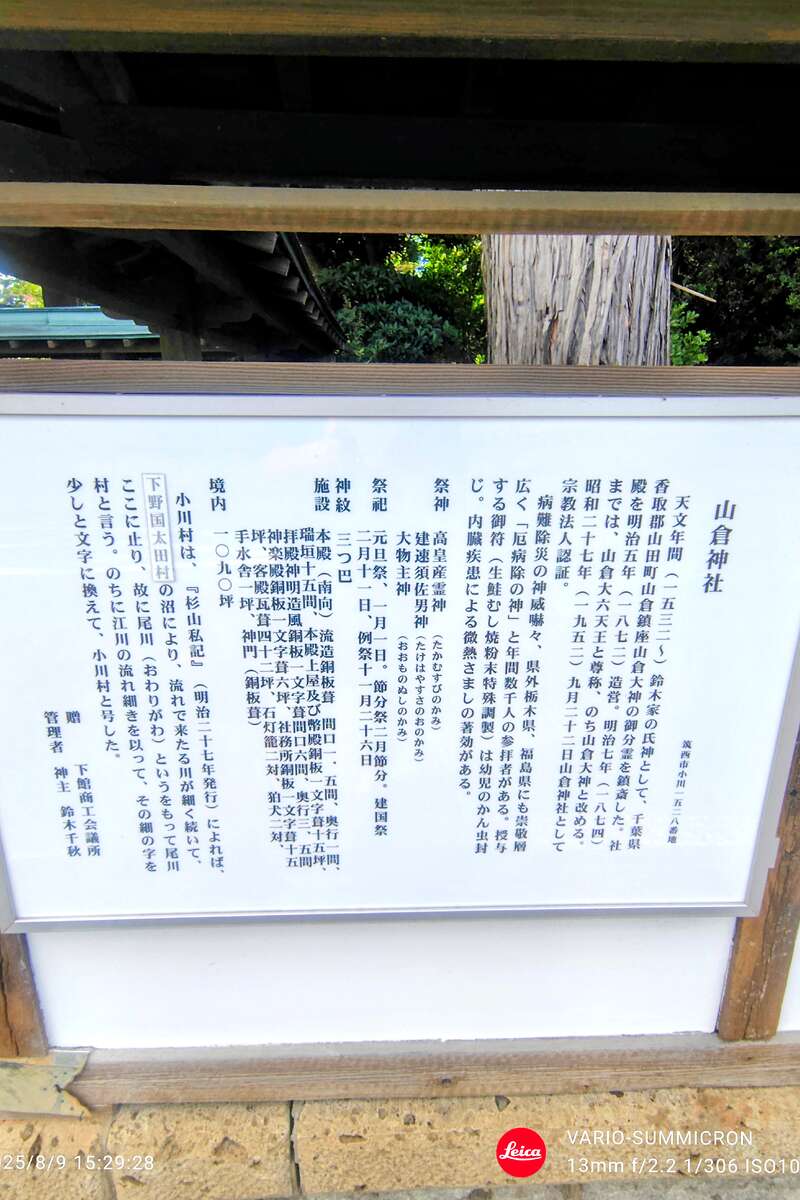 山倉神社
筑西市小川一五二八番地
天文年間（一五三二～）鈴木家の氏神として、千葉県
香取郡山田町山倉鎮座山倉大神の御分霊を鎮斎した。社
殿を明治五年（一八七二）造営。明治七年（一八七四）
までは、山倉大六天王と尊称、のち山倉大神と改める。
昭和二十七年（一九五二）九月二十二日山倉神社として
宗教法人認証。
病難除災の神威嚇々、県外栃木県、福島県にも崇敬層
広く「厄病除の神」と年間数千人の参拝者がある。授与
する御符（生鮭むし焼粉末特殊調製）は幼児のかん虫封
じ。内臓疾患による微熱さましの著効がある。
祭神　高皇産霊神（たかむすびのかみ）
建速須佐男神（たけはやすさのおのかみ）
大物主神（おおものぬしのかみ）
祭祀　元旦祭、一月一日。節分祭二月節分。建国祭
二月十一日、例祭十一月二十六日
神紋　三つ巴
施設　本殿（南向）流造銅板葺　間口一．五間、奥行一間、
瑞垣十五間、本殿上屋及び幣殿銅板一文字葺十五坪、
拝殿神明造風銅板一文字葺間口六間、奥行三．五間
神楽殿銅板一文字葺六坪、社務所銅板一文字葺十五
坪、客殿瓦葺四十二坪、石灯籠二対、狛犬二対、
手水舎一坪、神門（銅板葺）
境内　一〇九〇坪
小川村は、『杉山私記』（明治二十七年発行）によれば、
下野国太田村の沼により、流れで来たる川が細く続いて、
ここに止り、故に尾川（おわりがわ）というをもって尾川
村と言う。のちに江川の流れ細きを以って、その細の字を
少しと文字に換えて、小川村と号した。
贈　下館商工会議所
管理者　神主　鈴木千秋
25/8/9 15:29:28
Leica
VARIO-SUMMICRON
13mm f/2.2 1/306 ISO10